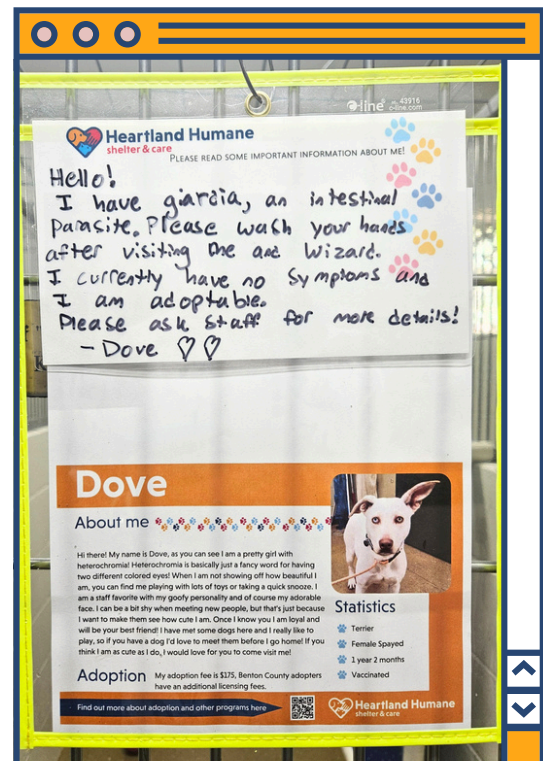 c-line 43916
c-line.com
Heartland Humane
shelter & care
PLEASE READ SOME IMPORTANT INFORMATION ABOUT ME!
Hello!
I have giardia, an intestinal
Parasite. Please wash your hands
after visiting me and Wizard.
I currently have no symptoms and
I am adoptable.
Please ask staff for more details!
- Dove ♡♡
Dove
About me
Hi there! My name is Dove, as you can see I am a pretty girl with
heterochromia! Heterochromia is basically just a fancy word for having
two different colored eyes! When I am not showing off how beautiful I
am, you can find me playing with lots of toys or taking a quick snooze. I
am a staff favorite with my goofy personality and of course my adorable
face. I can be a bit shy when meeting new people, but that's just because
I want to make them see how cute I am. Once I know you I am loyal and
will be your best friend! I have met some dogs here and I really like to
play, so if you have a dog I'd love to meet them before I go home! If you
think I am as cute as I do, I would love for you to come visit me!
Statistics
Terrier
Female Spayed
1 year 2 months
Vaccinated
Adoption
My adoption fee is $175, Benton County adopters
have an additional licensing fees.
Find out more about adoption and other programs here
Heartland Humane
shelter & care